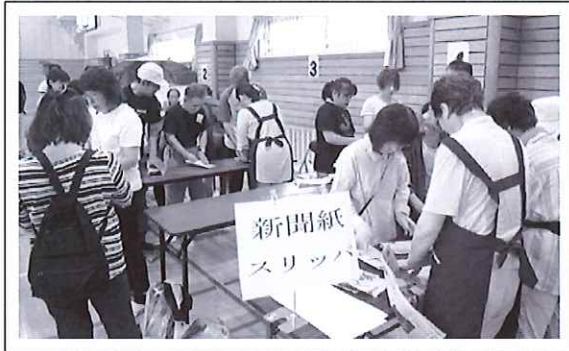 2
3
新聞紙
スリッパ